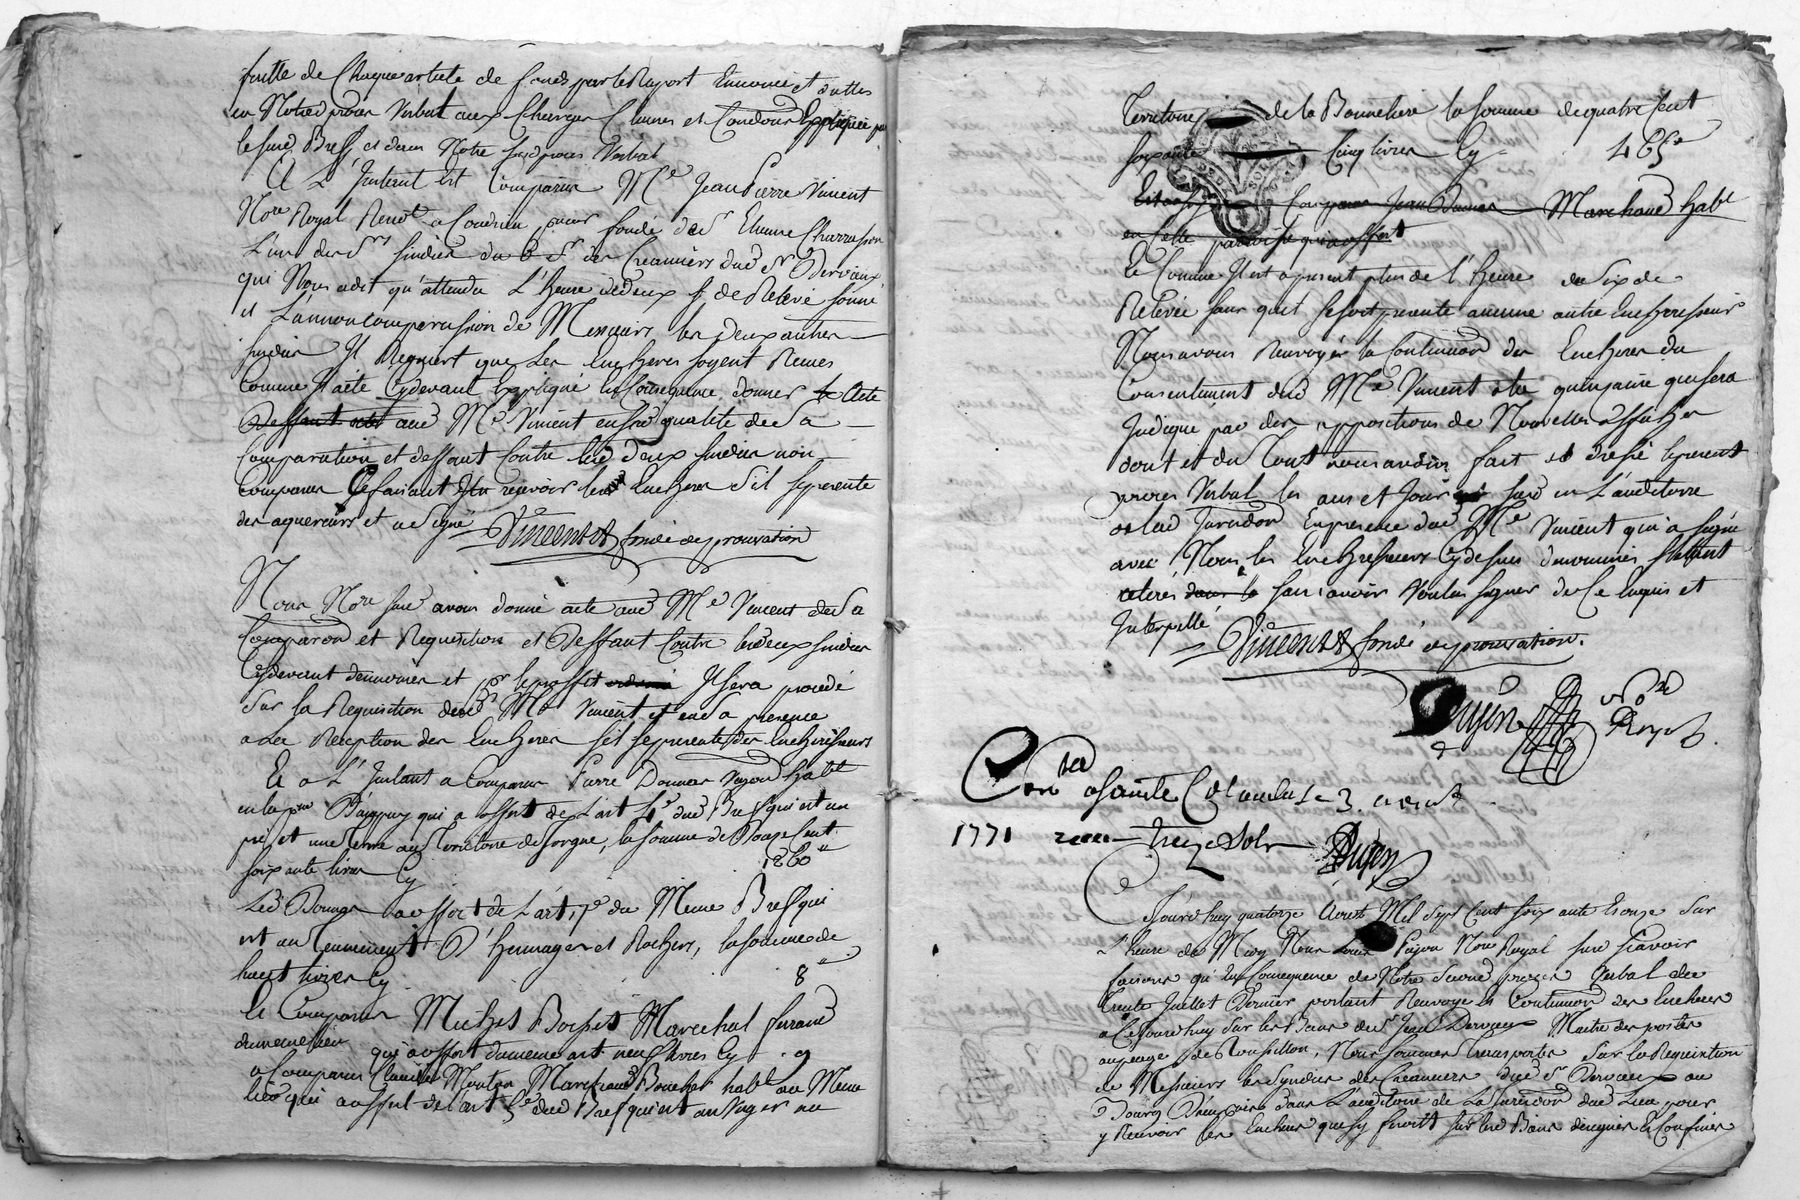 faitte de Chaque article de fonds par le Raport Ennoncé et dattes
en Notre dt proces Verbal aux Charges Clauses et Condons Expliquée par
lesusd Bref, et dans Notre susd proces Verbal
Et a L'Instant Est Comparu Me Jean Pierre Vincent
Nore Royal Resdt a Condrieu procur fondé de Sr Etienne Charresson
L'un des Srs sindics des Creanciers dud Sr Dervieux
qui Nous a dit qu'attendu L'heure de deux h de Relevé sonné
et La non comparussion de Messieurs les deux autres
sindics Il Requiert que Les Encheres soyent Reçues
Comme Il a été Cydevant Expliqué en Conséquence donner Acte
Deffaut acte aud Me Vincent en sad qualité de Sa
Comparution et deffaut Contre lesd deux sindics non
Comparus Ce faisant recevoir les Encheres S'il se presente
des aquereurs et a Signé Vincent fondé de procuration
Nous Nore susd avons donné acte aud Me Vincent de Sa
Comparaon et Requisition et Deffaut Contre les deux sindics
Cydevant denommés et pr le proffit Il sera procedé
Sur la Requisition dud Me Vincent et en Sa presence
a La Reception des Encheres s'il se presente des Encherisseurs
Et a L'Instant a Comparu Pierre Donnas habt
en la pare qui a offert de L'art 4e dud Bref qui est un
pré et une Terre au Territoire de Sorgue, la somme de Douze Cent
soixante livres Cy 1260"
Led Donnas a offert de L'art. 7e du Meme Bref qui
est un Tenement D'hermages et Rochers, la somme de
huit livres Cy 8"
Et Comparu Michel Marechal ferrand
du meme lieu qui a offert du meme art. neuf livres Cy 9
a Comparu Claude Mouton Marchand Boucher habt au Meme
lieu qui a offert de L'art 5e dud Bref qui est un Verger au
Territoire de la Bonneliere la somme de quatre Cent
soixante Cinq livres Cy 465"
Comparu Jean Dumas Marchand habt
en Cette parroisse qui a offert
Et Comme Il est a present plus de l'heure de Six de
Relevée sans qu'il se soit presenté aucune autre Encherisseur
Nous avons Renvoyés la Continuaon des Encheres du
Consentement dud Me Vincent a la quinzaine qui sera
Indiqué par des appositions de Nouvelles affiches
dont et du Tout nous avons fait et dressé le present
proces Verbal les ans et Jour susd en L'auditoire
de lad Jurisdon En presence dud Me Vincent qui a signé
avec Nous, les Encherisseurs Cydessus denommés s'Etant
retirés sans avoir voulu signer de Ce Enquis et
Interpellé Vincent fondé de procuration.
Pujon Nore Royal
Conlé a Sainte Colombe Le 3. aoust
1771 reçu Treize Sols Pujon
Aujourd'huy quatorze Aoust Mil Sept Cent soixante Et onze Sur
L'heure de Midy Nous Louis Pujon Nore Royal susd Sçavoir
faisons qu'En Consequence de Notre Second proces Verbal du
Trente Juillet Dernier portant Renvoye et Continuaon des Encheres
a Ce Jourd'huy Sur les Biens du Sr Jean Dervieux Maitre des postes
au péage de Roussillon, Nous sommes Transportés Sur la Requisition
de Messieurs les Syndics des Creanciers dud Sr Dervieux au
Bourg dans L'auditoire de La Jurisdon dud Lieu pour
y Recevoir les Encheres que s'y feront sur lesd Biens designés et Confinés